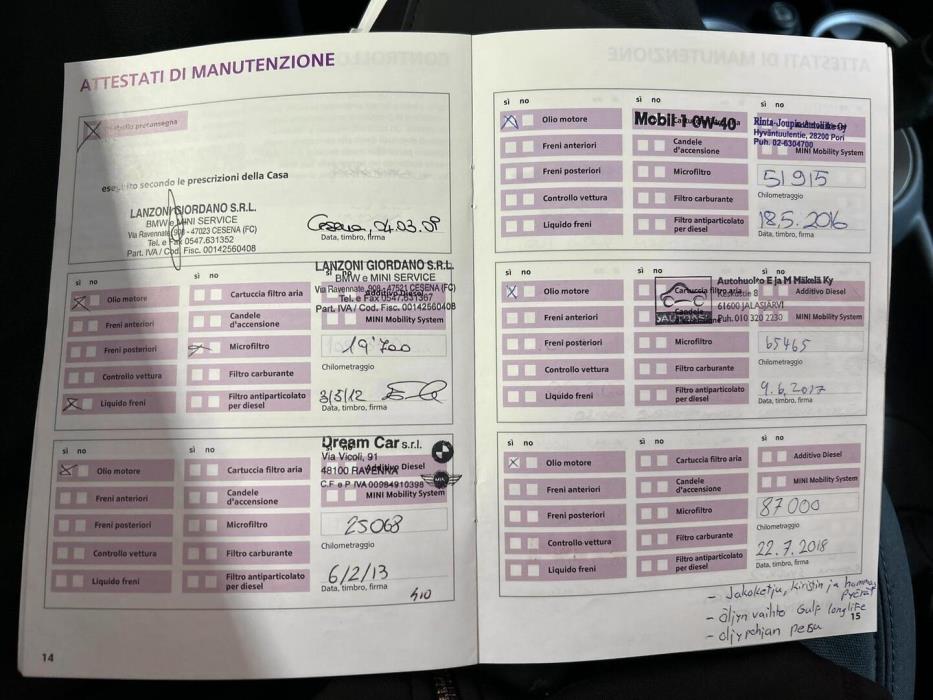 ATTESTATI DI MANUTENZIONE
Controllo preconsegna
eseguito secondo le prescrizioni della Casa
LANZONI GIORDANO S.R.L.
BMW e MINI SERVICE
Via Ravennate, 908 - 47023 CESENA (FC)
Tel. e Fax 0547.631352
Part. IVA / Cod. Fisc. 00142560408
Cesena, 04.03.09
Data, timbro, firma
sì no
sì no
sì no
Olio motore
Freni anteriori
Freni posteriori
Controllo vettura
Liquido freni
Cartuccia filtro aria
Candele
d'accensione
Microfiltro
Filtro carburante
Filtro antiparticolato
per diesel
LANZONI GIORDANO S.R.L.
BMW e MINI SERVICE
Via Ravennate, 908 - 47521 CESENA (FC)
Additivo Diesel
Tel. e Fax 0547.631367
Part. IVA / Cod. Fisc. 00142560408
MINI Mobility System
19'700
Chilometraggio
3/5/12
Data, timbro, firma
sì no
sì no
Olio motore
Freni anteriori
Freni posteriori
Controllo vettura
Liquido freni
Cartuccia filtro aria
Candele
d'accensione
Microfiltro
Filtro carburante
Filtro antiparticolato
per diesel
Dream Car s.r.l.
Via Vicoli, 91
48100 RAVENNA
Additivo Diesel
C.F. e P. IVA 00984910398
MINI Mobility System
25068
Chilometraggio
6/2/13
Data, timbro, firma
410
14
sì no
sì no
sì no
Olio motore
Freni anteriori
Freni posteriori
Controllo vettura
Liquido freni
Mobil 1 0W-40
Candele
d'accensione
Microfiltro
Filtro carburante
Filtro antiparticolato
per diesel
Rinta-Joupin Autoliike Oy
Hyväntuulentie, 28200 Pori
Puh. 02-6304700
MINI Mobility System
51915
Chilometraggio
18.5.2016
Data, timbro, firma
sì no
sì no
Olio motore
Freni anteriori
Freni posteriori
Controllo vettura
Liquido freni
Cartuccia filtro aria
Candele
Microfiltro
Filtro carburante
Filtro antiparticolato
per diesel
Autohuolto E ja M Mäkelä Ky
Keskustie 8
Additivo Diesel
61600 JALASJÄRVI
Puh. 010 320 2230
MINI Mobility System
65465
Chilometraggio
9.6.2017
Data, timbro, firma
sì no
sì no
sì no
Olio motore
Freni anteriori
Freni posteriori
Controllo vettura
Liquido freni
Cartuccia filtro aria
Candele
d'accensione
Microfiltro
Filtro carburante
Filtro antiparticolato
per diesel
Additivo Diesel
MINI Mobility System
87000
Chilometraggio
22.7.2018
Data, timbro, firma
- Jakoketju, kiristin ja hammas
pyörät
- öljyn vaihto Gulf longlife
- öljypohjan pesu
15